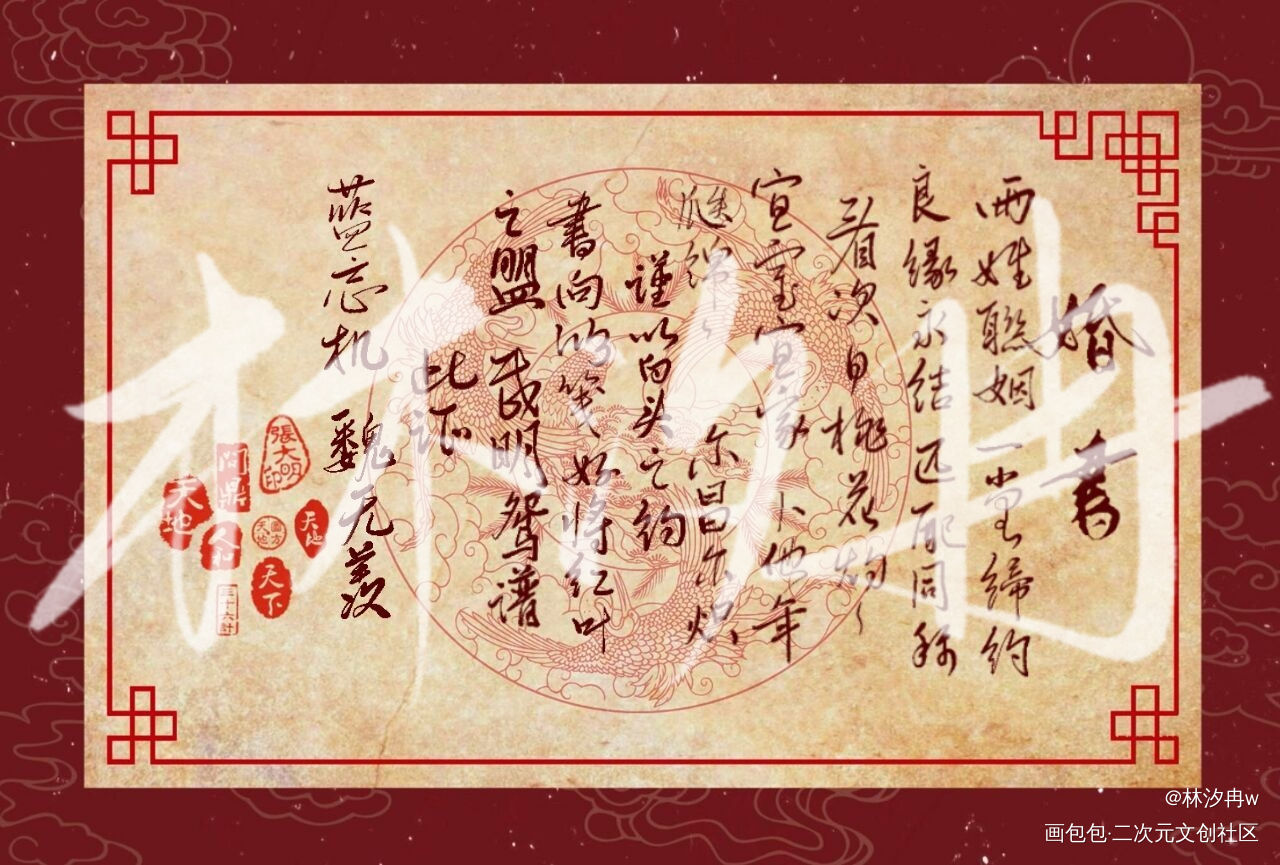 婚書
两姓聯姻一堂缔约
良缘永结匹配同称
看次日桃花灼灼
宜室宜家卜他年
瓜瓞绵绵尔昌尔炽
谨以白头之约
書向鸿笺好将红叶
之盟载明鸳谱
此证
蓝忘机
魏无羡
張大明印
問鼎
天地
人和
天地
天下
三十六計
林汐冉
@林汐冉w
画包包·二次元文创社区